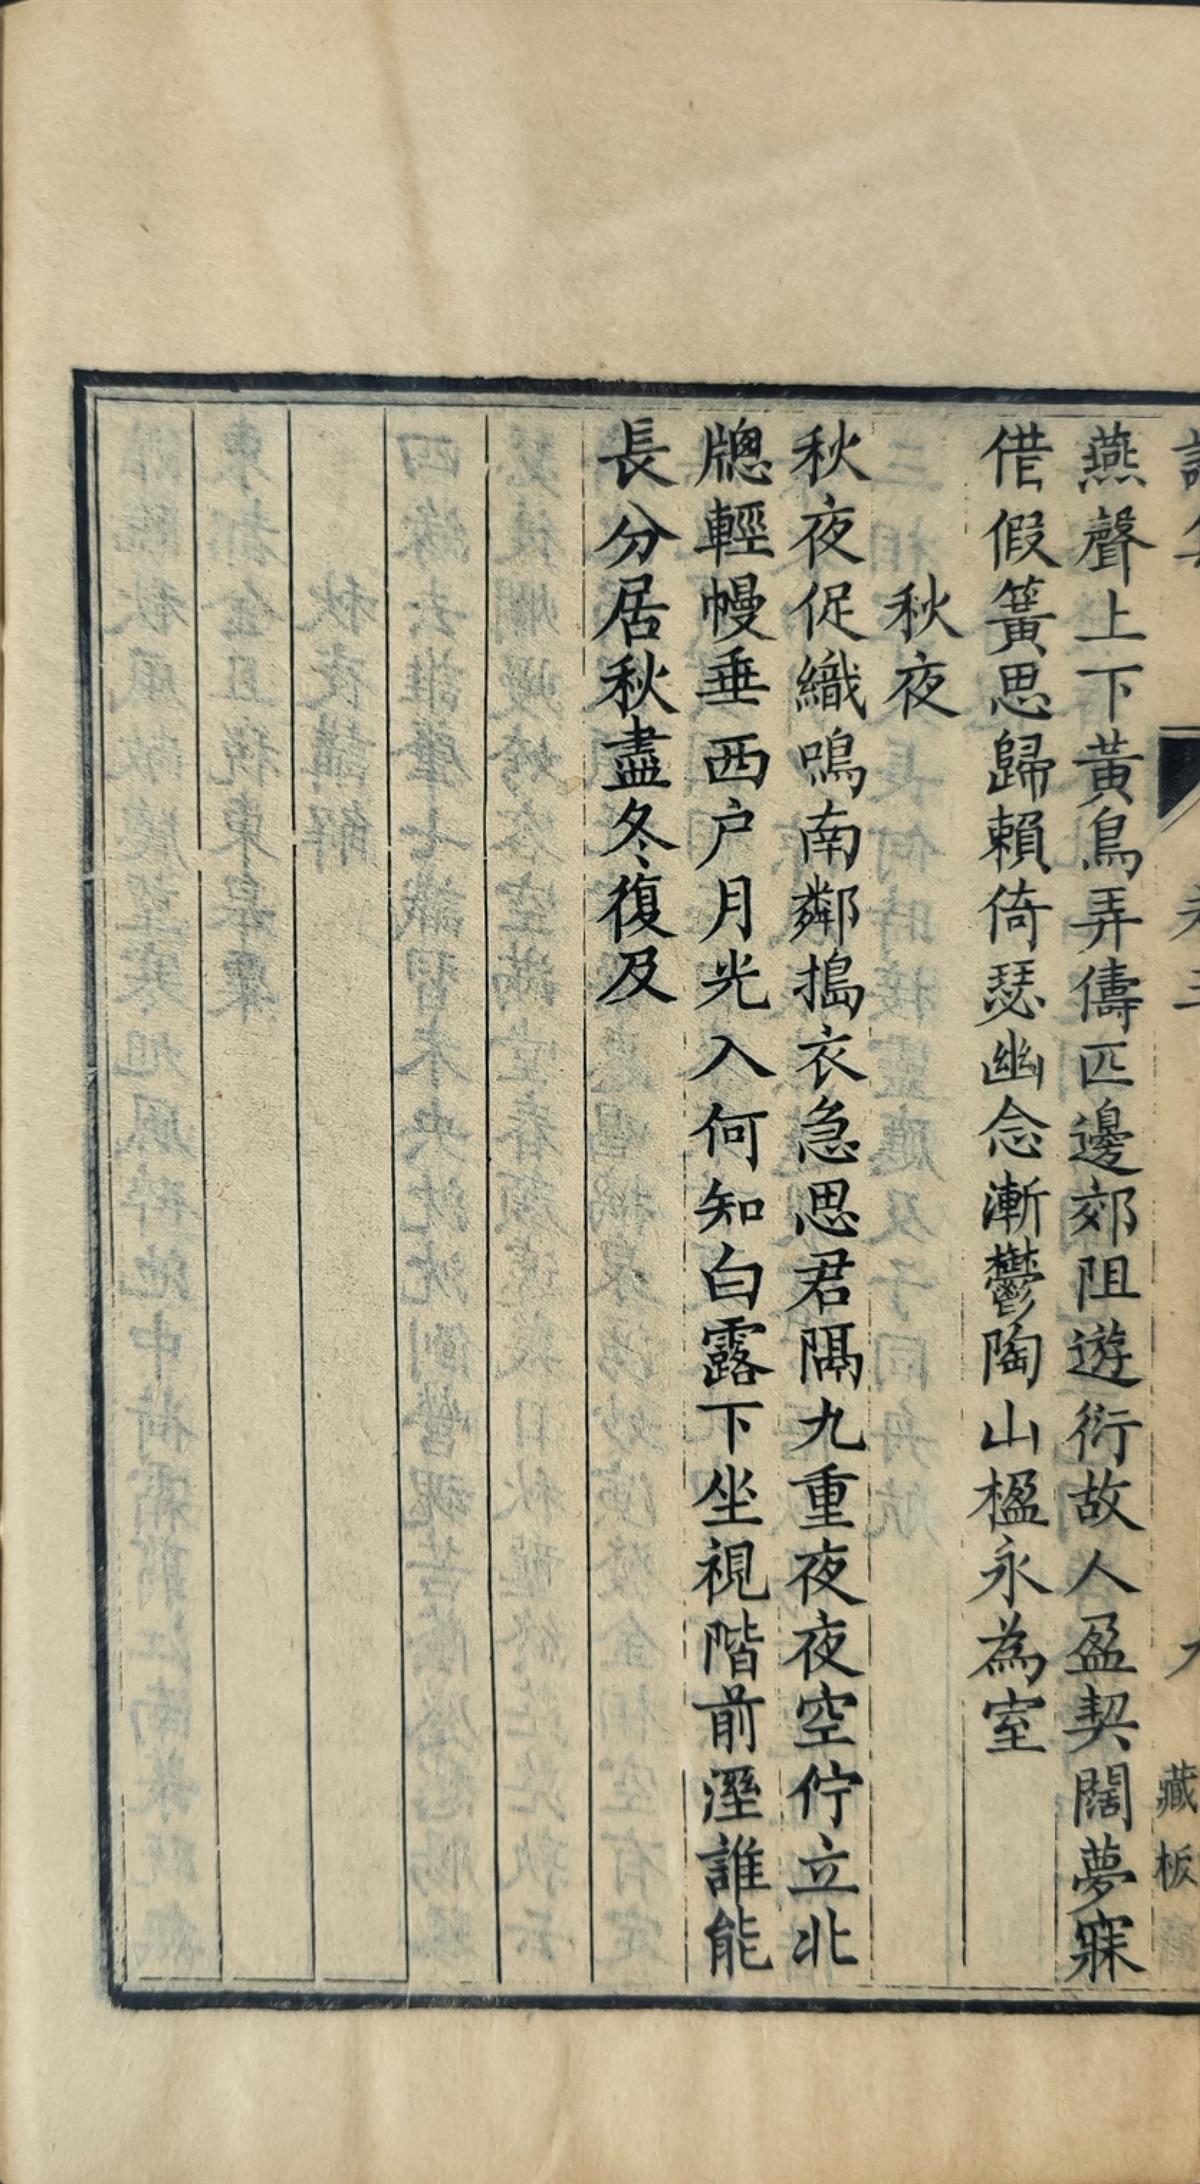 藏板
燕聲上下黃鳥弄儔匹邊郊阻遊衍故人盈契闊夢寐
借假簧思歸賴倚瑟幽念漸鬱陶山楹永為室
秋夜
秋夜促織鳴南鄰搗衣急思君隔九重夜夜空佇立北
牕輕幔垂西户月光入何知白露下坐視階前溼誰能
長分居秋盡冬復及